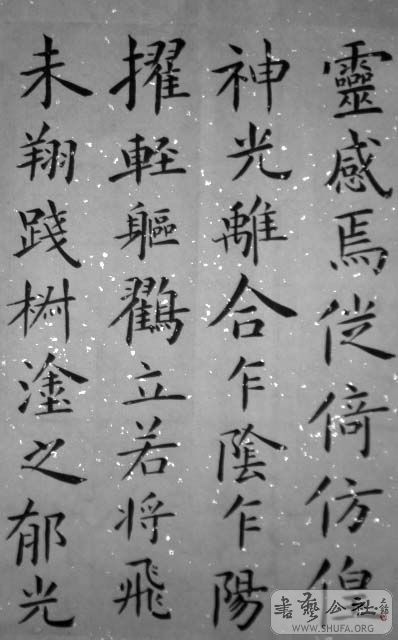 靈感焉徙倚仿偟
神光離合乍陰乍陽
擢輕軀鶴立若將飛
未翔踐椒塗之郁光
書藝公社
WWW.SHUFA.ORG